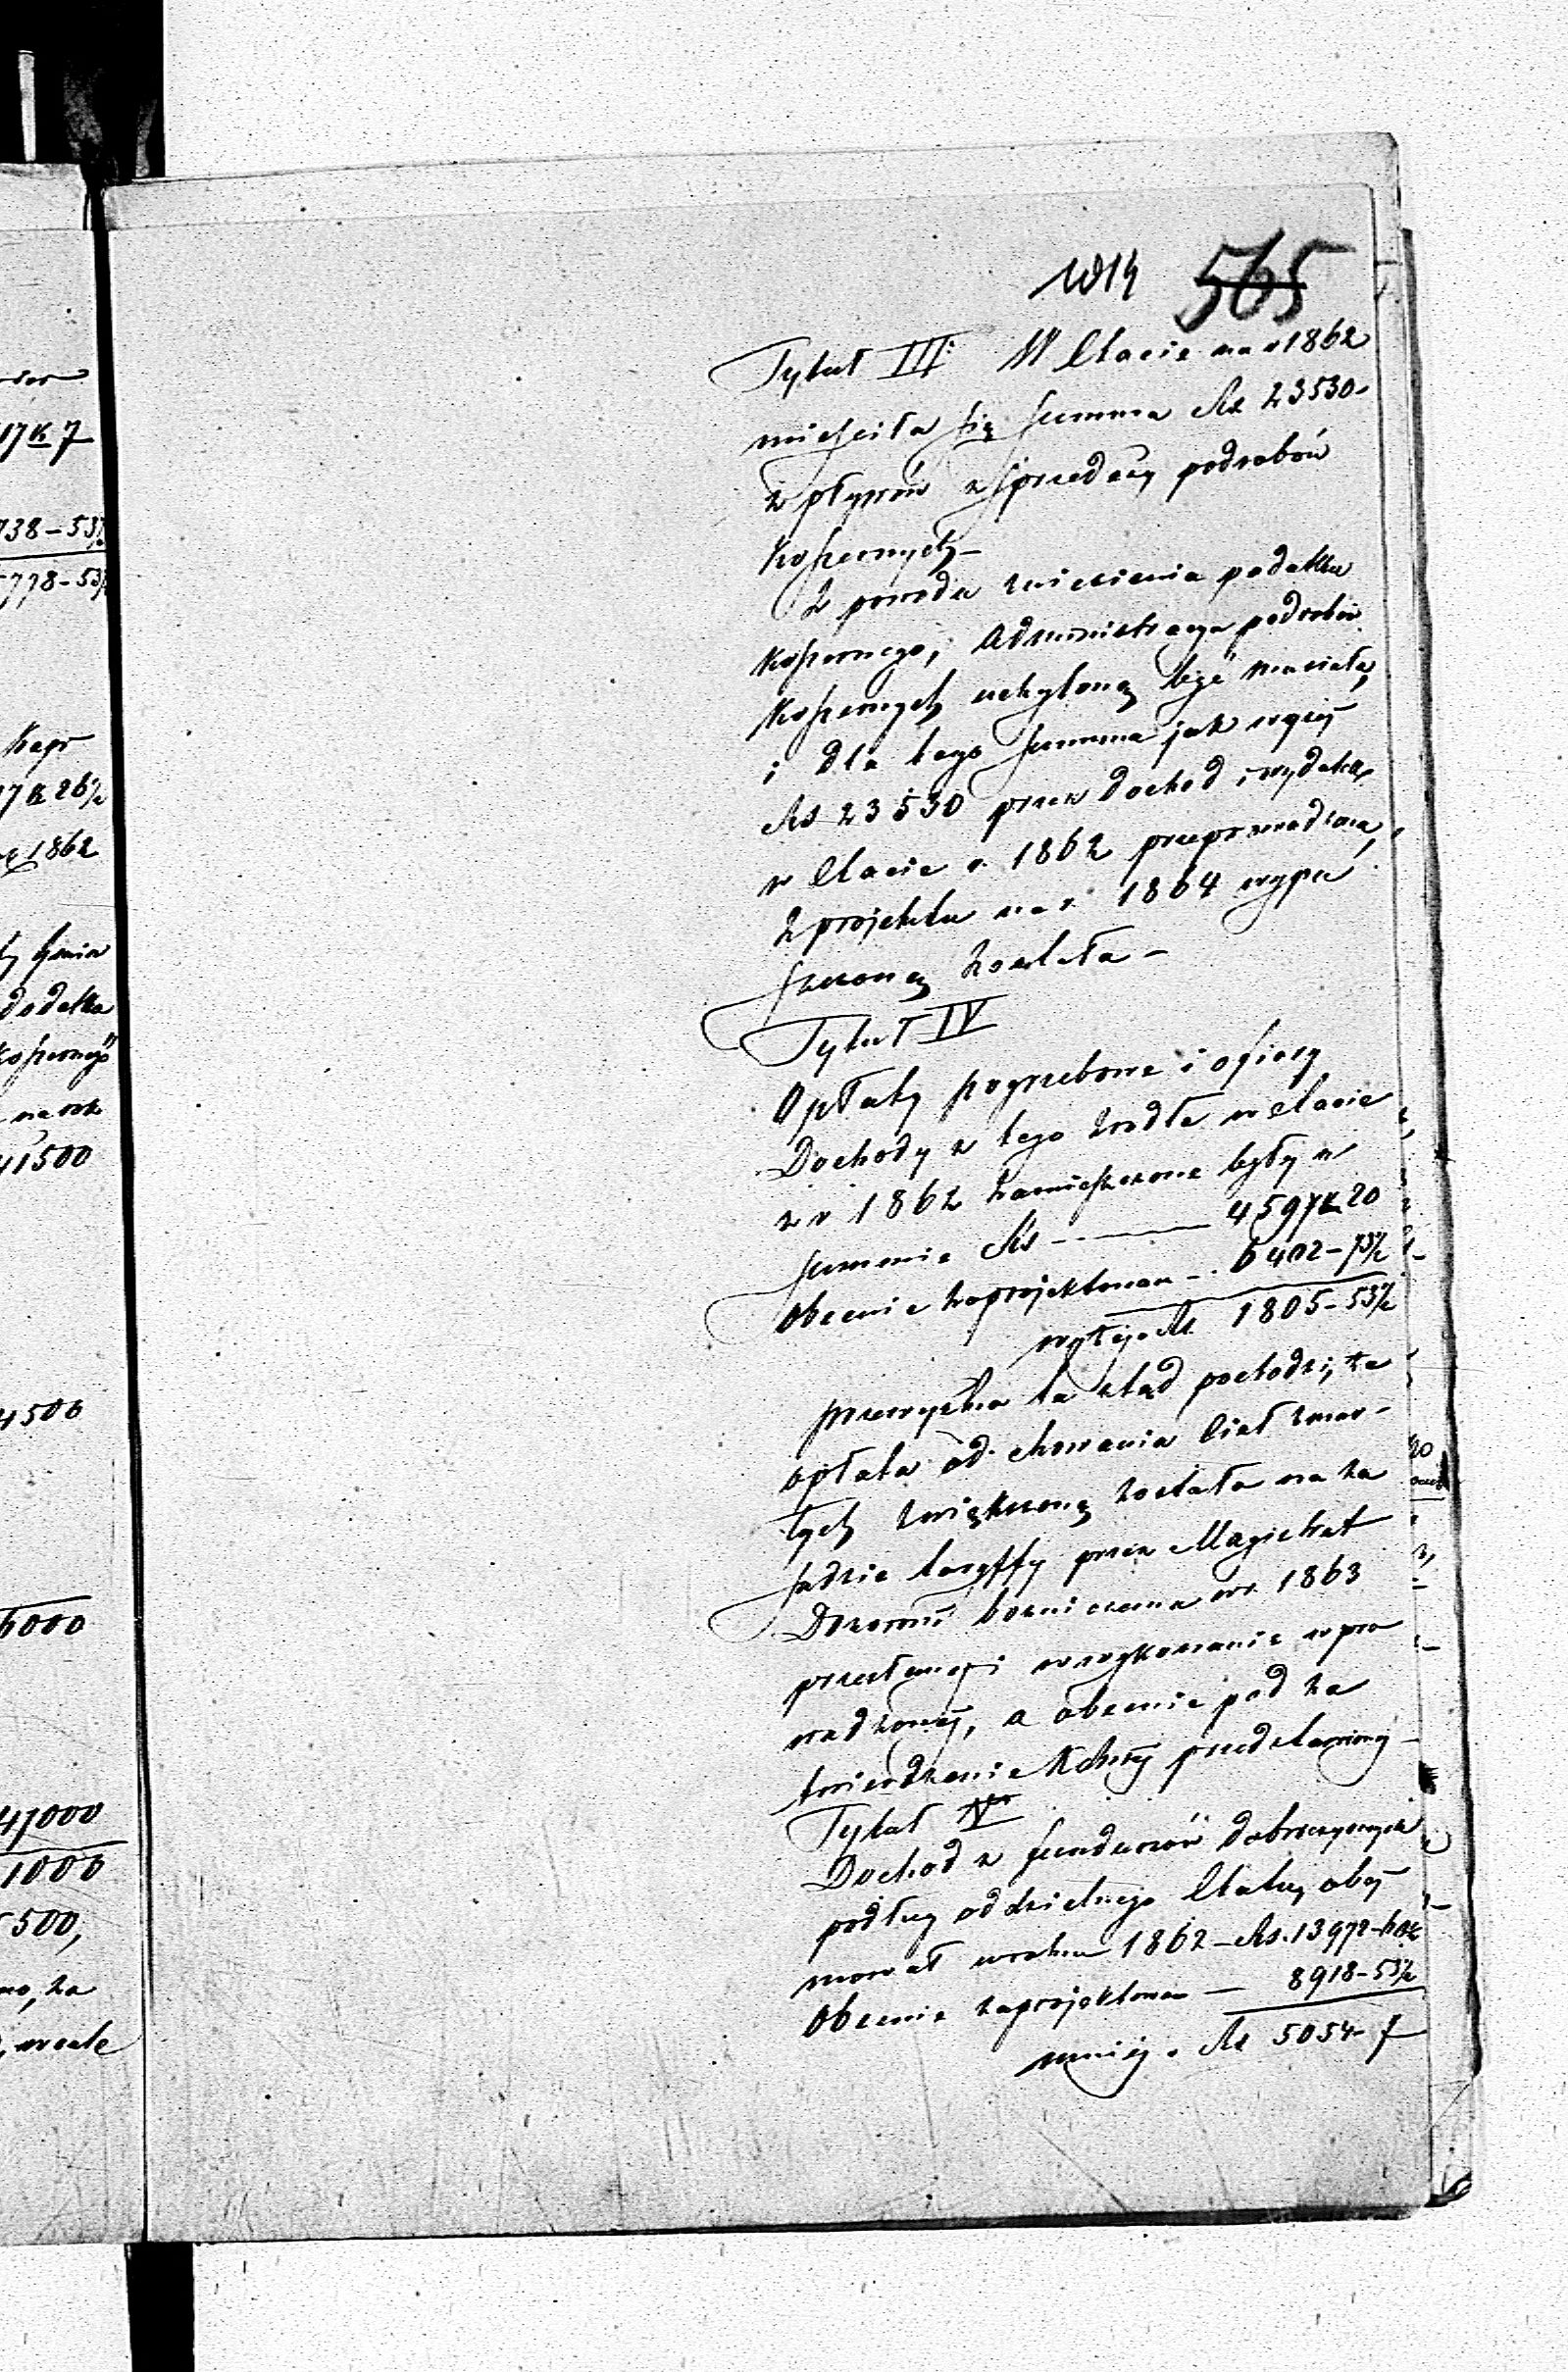 1014 565
Tytuł III: W Etacie na r 1862
mieściła się summa Rs 23530-
wpływów z sprzedaży podrobów
koszernych-
Z powodu zniesienia podatku
koszernego, Administracya podrobów
koszernych uchyloną być musiała,
i dla tego summa jak wyżej
Rs 23530 przez dochod i wydatek
w Etacie r. 1862 przeprowadzona,
z projektu na r. 1864 wypu
szczoną została-
Tytuł IV
Opłaty pogrzebowe i ofiary
Dochody z tego zrodła w etacie
z r 1862 zamieszczone były w
summie Rs ——— 4597 K 20
Obecnie zaprojektowano - 6402-73½
wyżej Rs. 1805-53½
przewyżka ta ztąd pochodzi, że
opłata od chowania ciał zmar-
łych zwiększoną została na za
sadzie taryffy przez Magistrat
Dozorowi bożniczemu w r. 1863
przesłanej i w wykonanie wpro
wadzonej, a obecnie pod za
twierdzenie przedstawionej-
Tytuł V
Dochod z funduszów dobroczynnych
podług oddzielnego Etatu, obej
mował w roku 1862 - Rs. 13972-60½
Obecnie zaprojektowano — 8918-53½
mniej. Rs 5054-7
17 K 7
738-53½
5778-53½
26½
1862
dodatku
koszernego
na rok
41500
4500
6000
47000
1000
500,
no, za